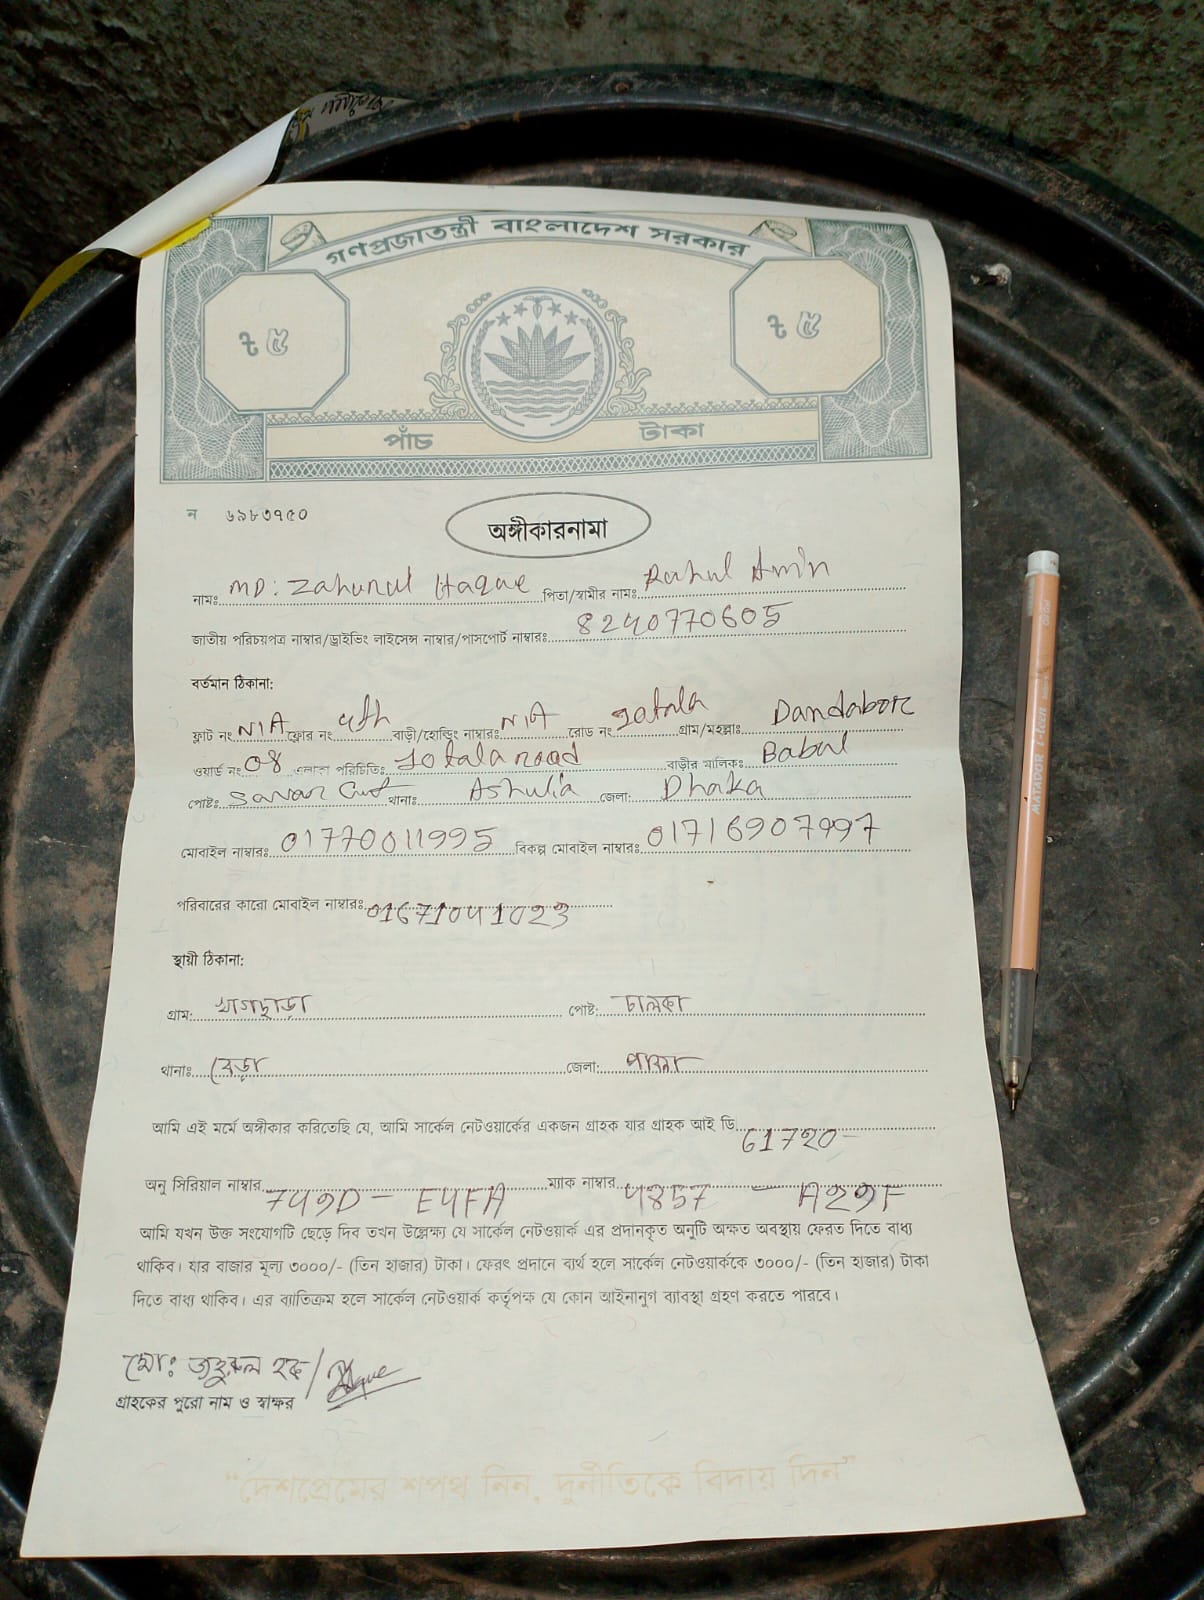 গণপ্রজাতন্ত্রী বাংলাদেশ সরকার
৳ ৫ ৳ ৫
পাঁচ টাকা
ন ৬৯৮৩৭৫০
অঙ্গীকারনামা
নামঃ MD: Zahurul Haque পিতা/স্বামীর নামঃ Ruhul Amin
জাতীয় পরিচয়পত্র নাম্বার/ড্রাইভিং লাইসেন্স নাম্বার/পাসপোর্ট নাম্বারঃ 8240770605
বর্তমান ঠিকানা:
ফ্লাট নং N/A ফ্লোর নং 4th বাড়ী/হোল্ডিং নাম্বারঃ N/A রোড নং 10tala গ্রাম/মহল্লাঃ Dandabor
ওয়ার্ড নং 08 এলাকা পরিচিতিঃ 10tala road বাড়ীর মালিকঃ Babul
পোষ্টঃ Savar Cant থানাঃ Ashulia জেলা: Dhaka
মোবাইল নাম্বারঃ 01770011995 বিকল্প মোবাইল নাম্বারঃ 01716907997
পরিবারের কারো মোবাইল নাম্বারঃ 01671041023
স্থায়ী ঠিকানা:
গ্রাম: পোষ্ট:
থানাঃ বেড়া জেলা: পাবনা
আমি এই মর্মে অঙ্গীকার করিতেছি যে, আমি সার্কেল নেটওয়ার্কের একজন গ্রাহক যার গ্রাহক আই ডি 61720
অনু সিরিয়াল নাম্বার 749D - E4FA ম্যাক নাম্বার 4857 - A29F
আমি যখন উক্ত সংযোগটি ছেড়ে দিব তখন উল্লেক্ষ্য যে সার্কেল নেটওয়ার্ক এর প্রদানকৃত অনুটি অক্ষত অবস্থায় ফেরত দিতে বাধ্য
থাকিব। যার বাজার মূল্য ৩০০০/- (তিন হাজার) টাকা। ফেরৎ প্রদানে ব্যর্থ হলে সার্কেল নেটওয়ার্ককে ৩০০০/- (তিন হাজার) টাকা
দিতে বাধ্য থাকিব। এর ব্যাতিক্রম হলে সার্কেল নেটওয়ার্ক কর্তৃপক্ষ যে কোন আইনানুগ ব্যাবস্থা গ্রহণ করতে পারবে।
মোঃ জহুরুল হক / Haque
গ্রাহকের পুরো নাম ও স্বাক্ষর
"দেশপ্রেমের শপথ নিন, দুর্নীতিকে বিদায় দিন"
MATADOR i-teen